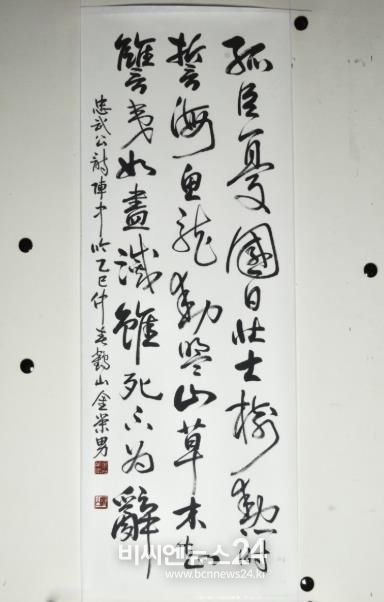 孤臣憂國日壯士樹勳時
誓海魚龍動盟山草木知
讐夷如盡滅雖死不為辭
忠武公詩陣中吟乙巳仲春鶴山金榮男
비씨엔뉴스24
www.bcnnews24.kr